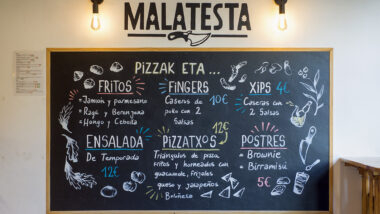 MALATESTA
PiZZAK ETA ...
FRITOS
- Jamón y parmesano
- Ragú y Berenjena
- Hongo y Cebolla
FINGERS
Caseros de 10€
pollo con 2
Salsas
XIPS 4€
Caseras con
2 Salsas
ENSALADA
De Temporada
12€
PiZZATXOS 12€
Triángulos de pizza
fritos y horneados con
guacamole, frijoles
queso y jalapeños
Boloñesa
POSTRES
- Brownie
- Birramisú
5€